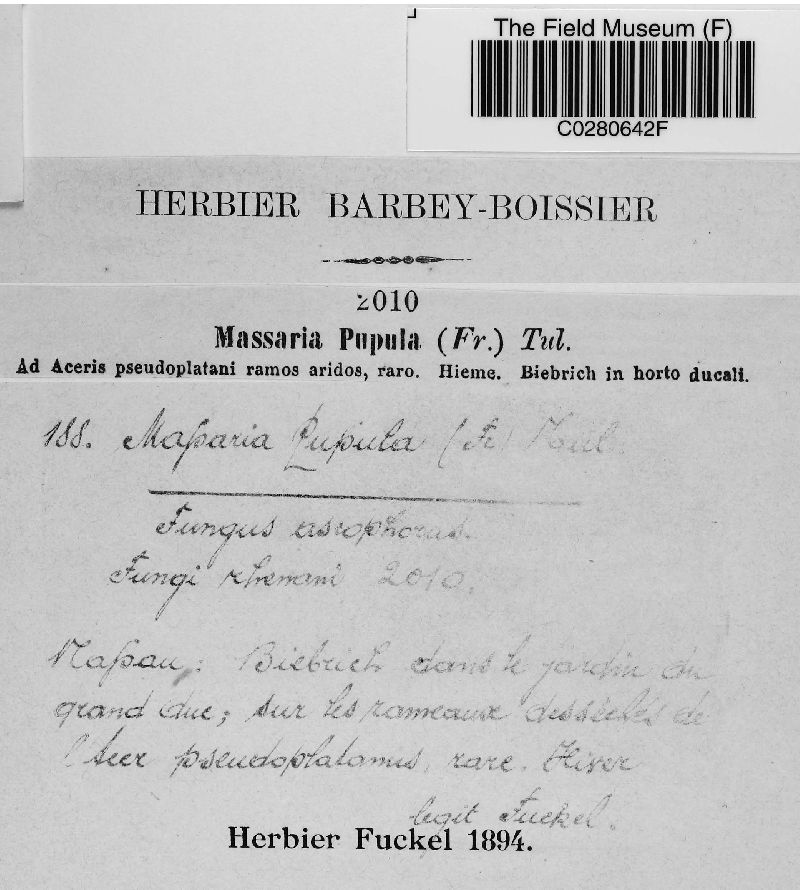 The Field Museum (F)
C0280642F
HERBIER BARBEY-BOISSIER
2010
Massaria Pupula (Fr.) Tul.
Ad Aceris pseudoplatani ramos aridos, raro. Hieme. Biebrich in horto ducali.
188. Maßaria Pupula (Fr) Toul.
Fungus ascophorus.
Fungi rhenani 2010.
Naßau: Biebrich dans le jardin du
grand duc; sur les rameaux desséchés de
l'Acer pseudoplatanus, rare. Hiver
legit Fuckel.
Herbier Fuckel 1894.